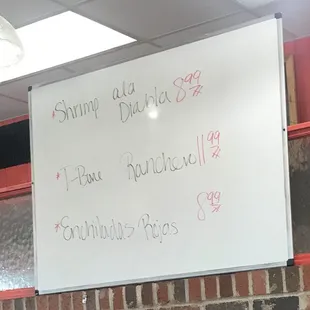 *Shrimp ala Diabla 8 99
*T-Bone Ranchero 11 99
*Enchiladas Rojas 8 99